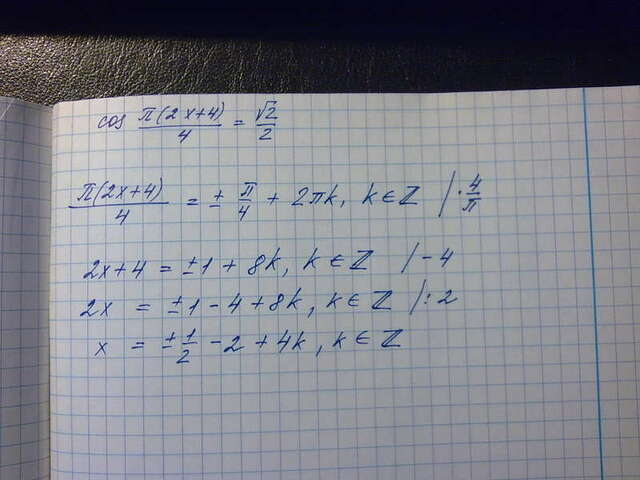 cos π(2x+4)/4 = √2/2
π(2x+4)/4 = ± π/4 + 2πk, k∈ℤ |· 4/π
2x+4 = ±1 + 8k, k∈ℤ |-4
2x = ±1 - 4 + 8k, k∈ℤ |:2
x = ± 1/2 - 2 + 4k, k∈ℤ